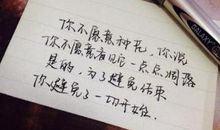 你不愿意种花，你说
你不愿意看它一点点凋落
是的，为了避免结束
你避免了一切开始。
GALAXY